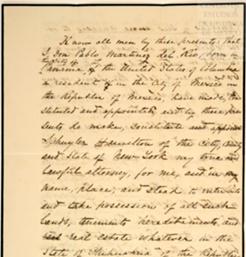 Know all men by these presents, that
I, Don Pablo Martinez del Rio, born in
of the United States of
a resident of in the City of Mexico in
the Republic of Mexico, have made, con-
stituted and appointed, and by these pre-
sents do make, constitute and appoint
Schuyler Hamilton of the City, County
and State of New-York my true and
lawful attorney, for me, and in my
name, place, and stead to enter into
and take possession of all such
lands, tenements hereditaments, and
real estate whatever in the
State of of the Republic